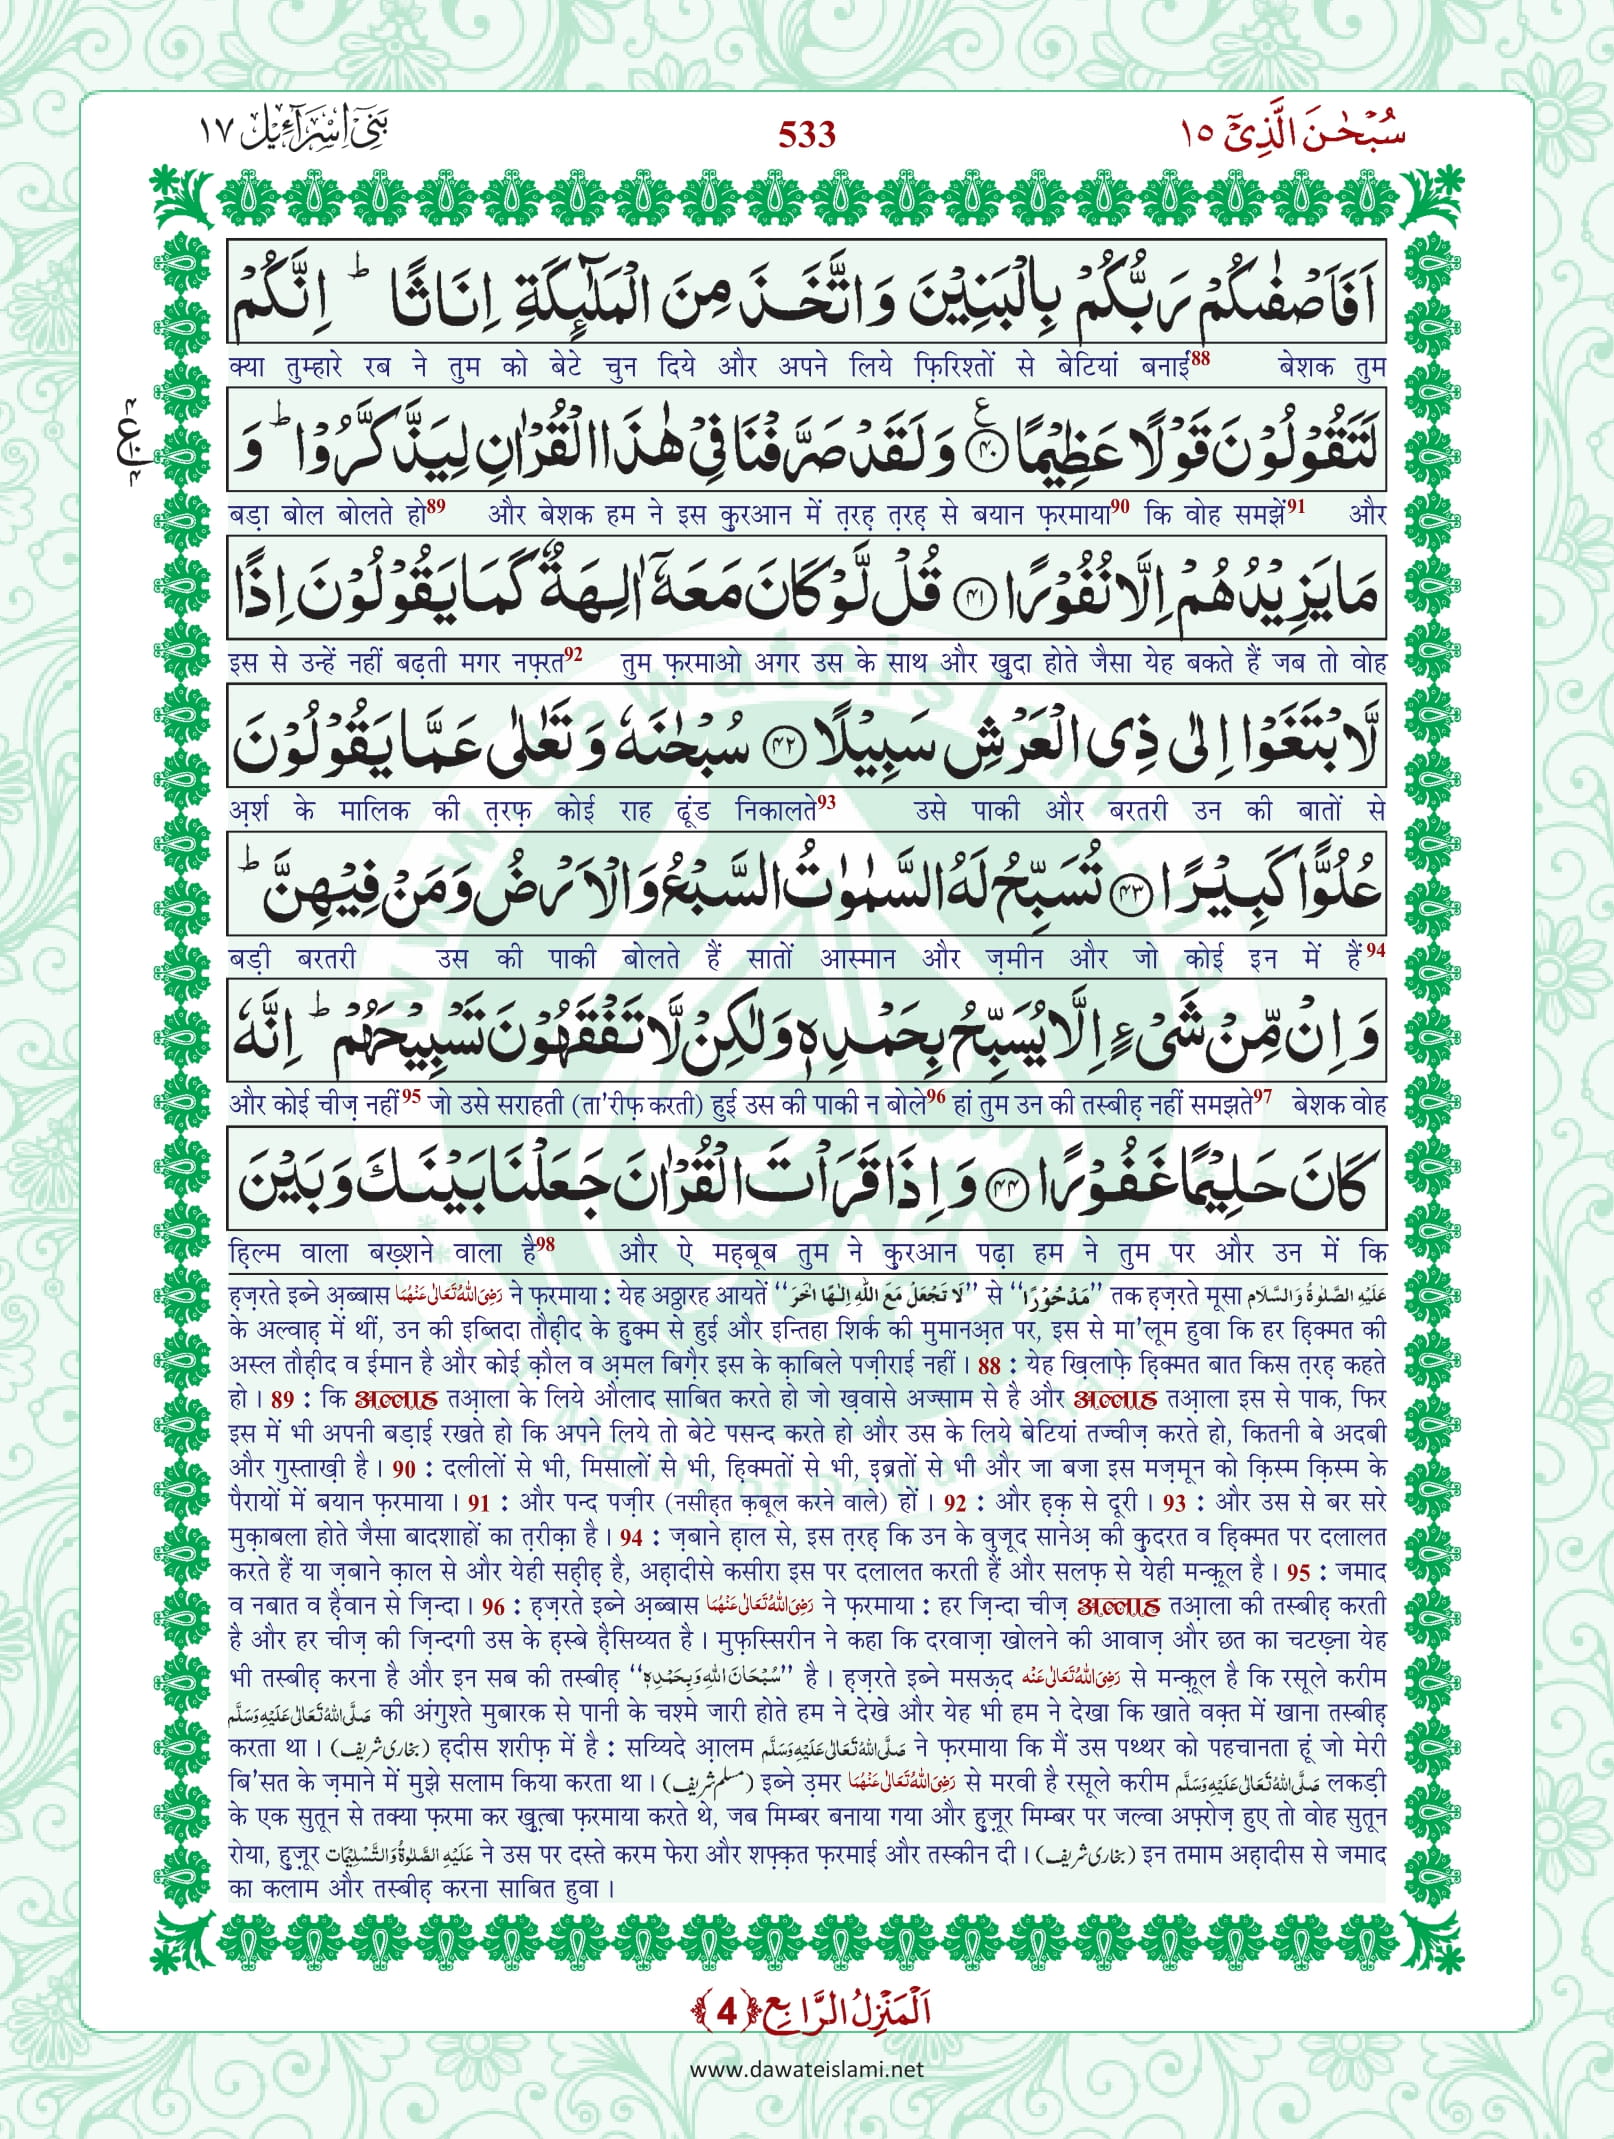 سُبْحٰنَ الَّذِیْۤ ١٥
533
بَنِیْۤ اِسْرَآءِیْل ١٧
اَفَاَصْفٰىكُمْ رَبُّكُمْ بِالْبَنِیْنَ وَ اتَّخَذَ مِنَ الْمَلٰٓىٕكَةِ اِنَاثًاؕ اِنَّكُمْ
क्या तुम्हारे रब ने तुम को बेटे चुन दिये और अपने लिये फ़िरिश्तों से बेटियां बनाईं88 बेशक तुम
لَتَقُوْلُوْنَ قَوْلًا عَظِیْمًا۠ ﴿۴۰﴾ وَ لَقَدْ صَرَّفْنَا فِیْ هٰذَا الْقُرْاٰنِ لِیَذَّكَّرُوْاؕ وَ
बड़ा बोल बोलते हो89 और बेशक हम ने इस क़ुरआन में त़रह़ त़रह़ से बयान फ़रमाया90 कि वोह समझें91 और
مَا یَزِیْدُهُمْ اِلَّا نُفُوْرًا ﴿۴۱﴾ قُلْ لَّوْ كَانَ مَعَهٗۤ اٰلِهَةٌ كَمَا یَقُوْلُوْنَ اِذًا
इस से उन्हें नहीं बढ़ती मगर नफ़्रत92 तुम फ़रमाओ अगर उस के साथ और ख़ुदा होते जैसा येह बकते हैं जब तो वोह
لَّابْتَغَوْا اِلٰى ذِی الْعَرْشِ سَبِیْلًا ﴿۴۲﴾ سُبْحٰنَهٗ وَ تَعٰلٰى عَمَّا یَقُوْلُوْنَ
अ़र्श के मालिक की त़रफ़ कोई राह ढूंड निकालते93 उसे पाकी और बरतरी उन की बातों से
عُلُوًّا كَبِیْرًا ﴿۴۳﴾ تُسَبِّحُ لَهُ السَّمٰوٰتُ السَّبْعُ وَ الْاَرْضُ وَ مَنْ فِیْهِنَّؕ
बड़ी बरतरी उस की पाकी बोलते हैं सातों आस्मान और ज़मीन और जो कोई इन में हैं94
وَ اِنْ مِّنْ شَیْءٍ اِلَّا یُسَبِّحُ بِحَمْدِهٖ وَ لٰكِنْ لَّا تَفْقَهُوْنَ تَسْبِیْحَهُمْؕ اِنَّهٗ
और कोई चीज़ नहीं95 जो उसे सराहती (ता'रीफ़ करती) हुई उस की पाकी न बोले96 हां तुम उन की तस्बीह़ नहीं समझते97 बेशक वोह
كَانَ حَلِیْمًا غَفُوْرًا ﴿۴۴﴾ وَ اِذَا قَرَاْتَ الْقُرْاٰنَ جَعَلْنَا بَیْنَكَ وَ بَیْنَ
ह़िल्म वाला बख़्शने वाला है98 और ऐ मह़बूब तुम ने क़ुरआन पढ़ा हम ने तुम पर और उन में कि
ह़ज़रते इब्ने अ़ब्बास رَضِیَ اللّٰهُ تَعَالٰی عَنْهُمَا ने फ़रमाया : येह अठ्ठारह आयतें ‘‘لَا تَجْعَلْ مَعَ اللّٰهِ اِلٰـهًا اٰخَرَ’’ से ‘‘مَدْحُوْرًا’’ तक ह़ज़रते मूसा عَلَیْهِ الصَّلٰوةُ وَالسَّلَام
के अल्वाह़ में थीं, उन की इब्तिदा तौह़ीद के हुक्म से हुई और इन्तिहा शिर्क की मुमानअ़त पर, इस से मा'लूम हुवा कि हर ह़िक्मत की
अस्ल तौह़ीद व ईमान है और कोई क़ौल व अ़मल बिग़ैर इस के क़ाबिले पज़ीराई नहीं । 88 : येह ख़िलाफ़े ह़िक्मत बात किस त़रह़ कहते
हो । 89 : कि अल्लाह तआ़ला के लिये औलाद साबित करते हो जो ख़वासे अज्साम से है और अल्लाह तआ़ला इस से पाक, फिर
इस में भी अपनी बड़ाई रखते हो कि अपने लिये तो बेटे पसन्द करते हो और उस के लिये बेटियां तज्वीज़ करते हो, कितनी बे अदबी
और गुस्ताख़ी है । 90 : दलीलों से भी, मिसालों से भी, ह़िक्मतों से भी, इ़ब्रतों से भी और जा बजा इस मज़्मून को क़िस्म क़िस्म के
पैरायों में बयान फ़रमाया । 91 : और पन्द पज़ीर (नसीह़त क़बूल करने वाले) हों । 92 : और ह़क़ से दूरी । 93 : और उस से बर सरे
मुक़ाबला होते जैसा बादशाहों का त़रीक़ा है । 94 : ज़बाने ह़ाल से, इस त़रह़ कि उन के वुजूद सानेअ़ की क़ुदरत व ह़िक्मत पर दलालत
करते हैं या ज़बाने क़ाल से और येही सह़ीह़ है, अह़ादीसे कसीरा इस पर दलालत करती हैं और सलफ़ से येही मन्क़ूल है । 95 : जमाद
व नबात व ह़ैवान से ज़िन्दा । 96 : ह़ज़रते इब्ने अ़ब्बास رَضِیَ اللّٰهُ تَعَالٰی عَنْهُمَا ने फ़रमाया : हर ज़िन्दा चीज़ अल्लाह तआ़ला की तस्बीह़ करती
है और हर चीज़ की ज़िन्दगी उस के ह़स्बे ह़ैसिय्यत है । मुफ़स्सिरीन ने कहा कि दरवाज़ा खोलने की आवाज़ और छत का चटख़्ना येह
भी तस्बीह़ करना है और इन सब की तस्बीह़ ‘‘سُبْحَانَ اللّٰهِ وَبِحَمْدِهٖ’’ है । ह़ज़रते इब्ने मसऊ़द رَضِیَ اللّٰهُ تَعَالٰی عَنْه से मन्क़ूल है कि रसूले करीम
صَلَّی اللّٰهُ تَعَالٰی عَلَیْهِ وَسَلَّم की अंगुश्ते मुबारक से पानी के चश्मे जारी होते हम ने देखे और येह भी हम ने देखा कि खाते वक़्त में खाना तस्बीह़
करता था । (بخاری شریف) ह़दीस शरीफ़ में है : सय्यिदे आ़लम صَلَّی اللّٰهُ تَعَالٰی عَلَیْهِ وَسَلَّم ने फ़रमाया कि मैं उस पथ्थर को पहचानता हूं जो मेरी
बि'सत के ज़माने में मुझे सलाम किया करता था । (مسلم شریف) इब्ने उ़मर رَضِیَ اللّٰهُ تَعَالٰی عَنْهُمَا से मरवी है रसूले करीम صَلَّی اللّٰهُ تَعَالٰی عَلَیْهِ وَسَلَّم लकड़ी
के एक सुतून से तक्या फ़रमा कर ख़ुत़्बा फ़रमाया करते थे, जब मिम्बर बनाया गया और हुज़ूर मिम्बर पर जल्वा अफ़्रोज़ हुए तो वोह सुतून
रोया, हुज़ूर عَلَیْهِ الصَّلٰوةُ وَالتَّسْلِیْمَات ने उस पर दस्ते करम फेरा और शफ़्क़त फ़रमाई और तस्कीन दी । (بخاری شریف) इन तमाम अह़ादीस से जमाद
का कलाम और तस्बीह़ करना साबित हुवा ।
اَلْمَنْزِلُ الرَّابِع ﴿4﴾
www.dawateislami.net